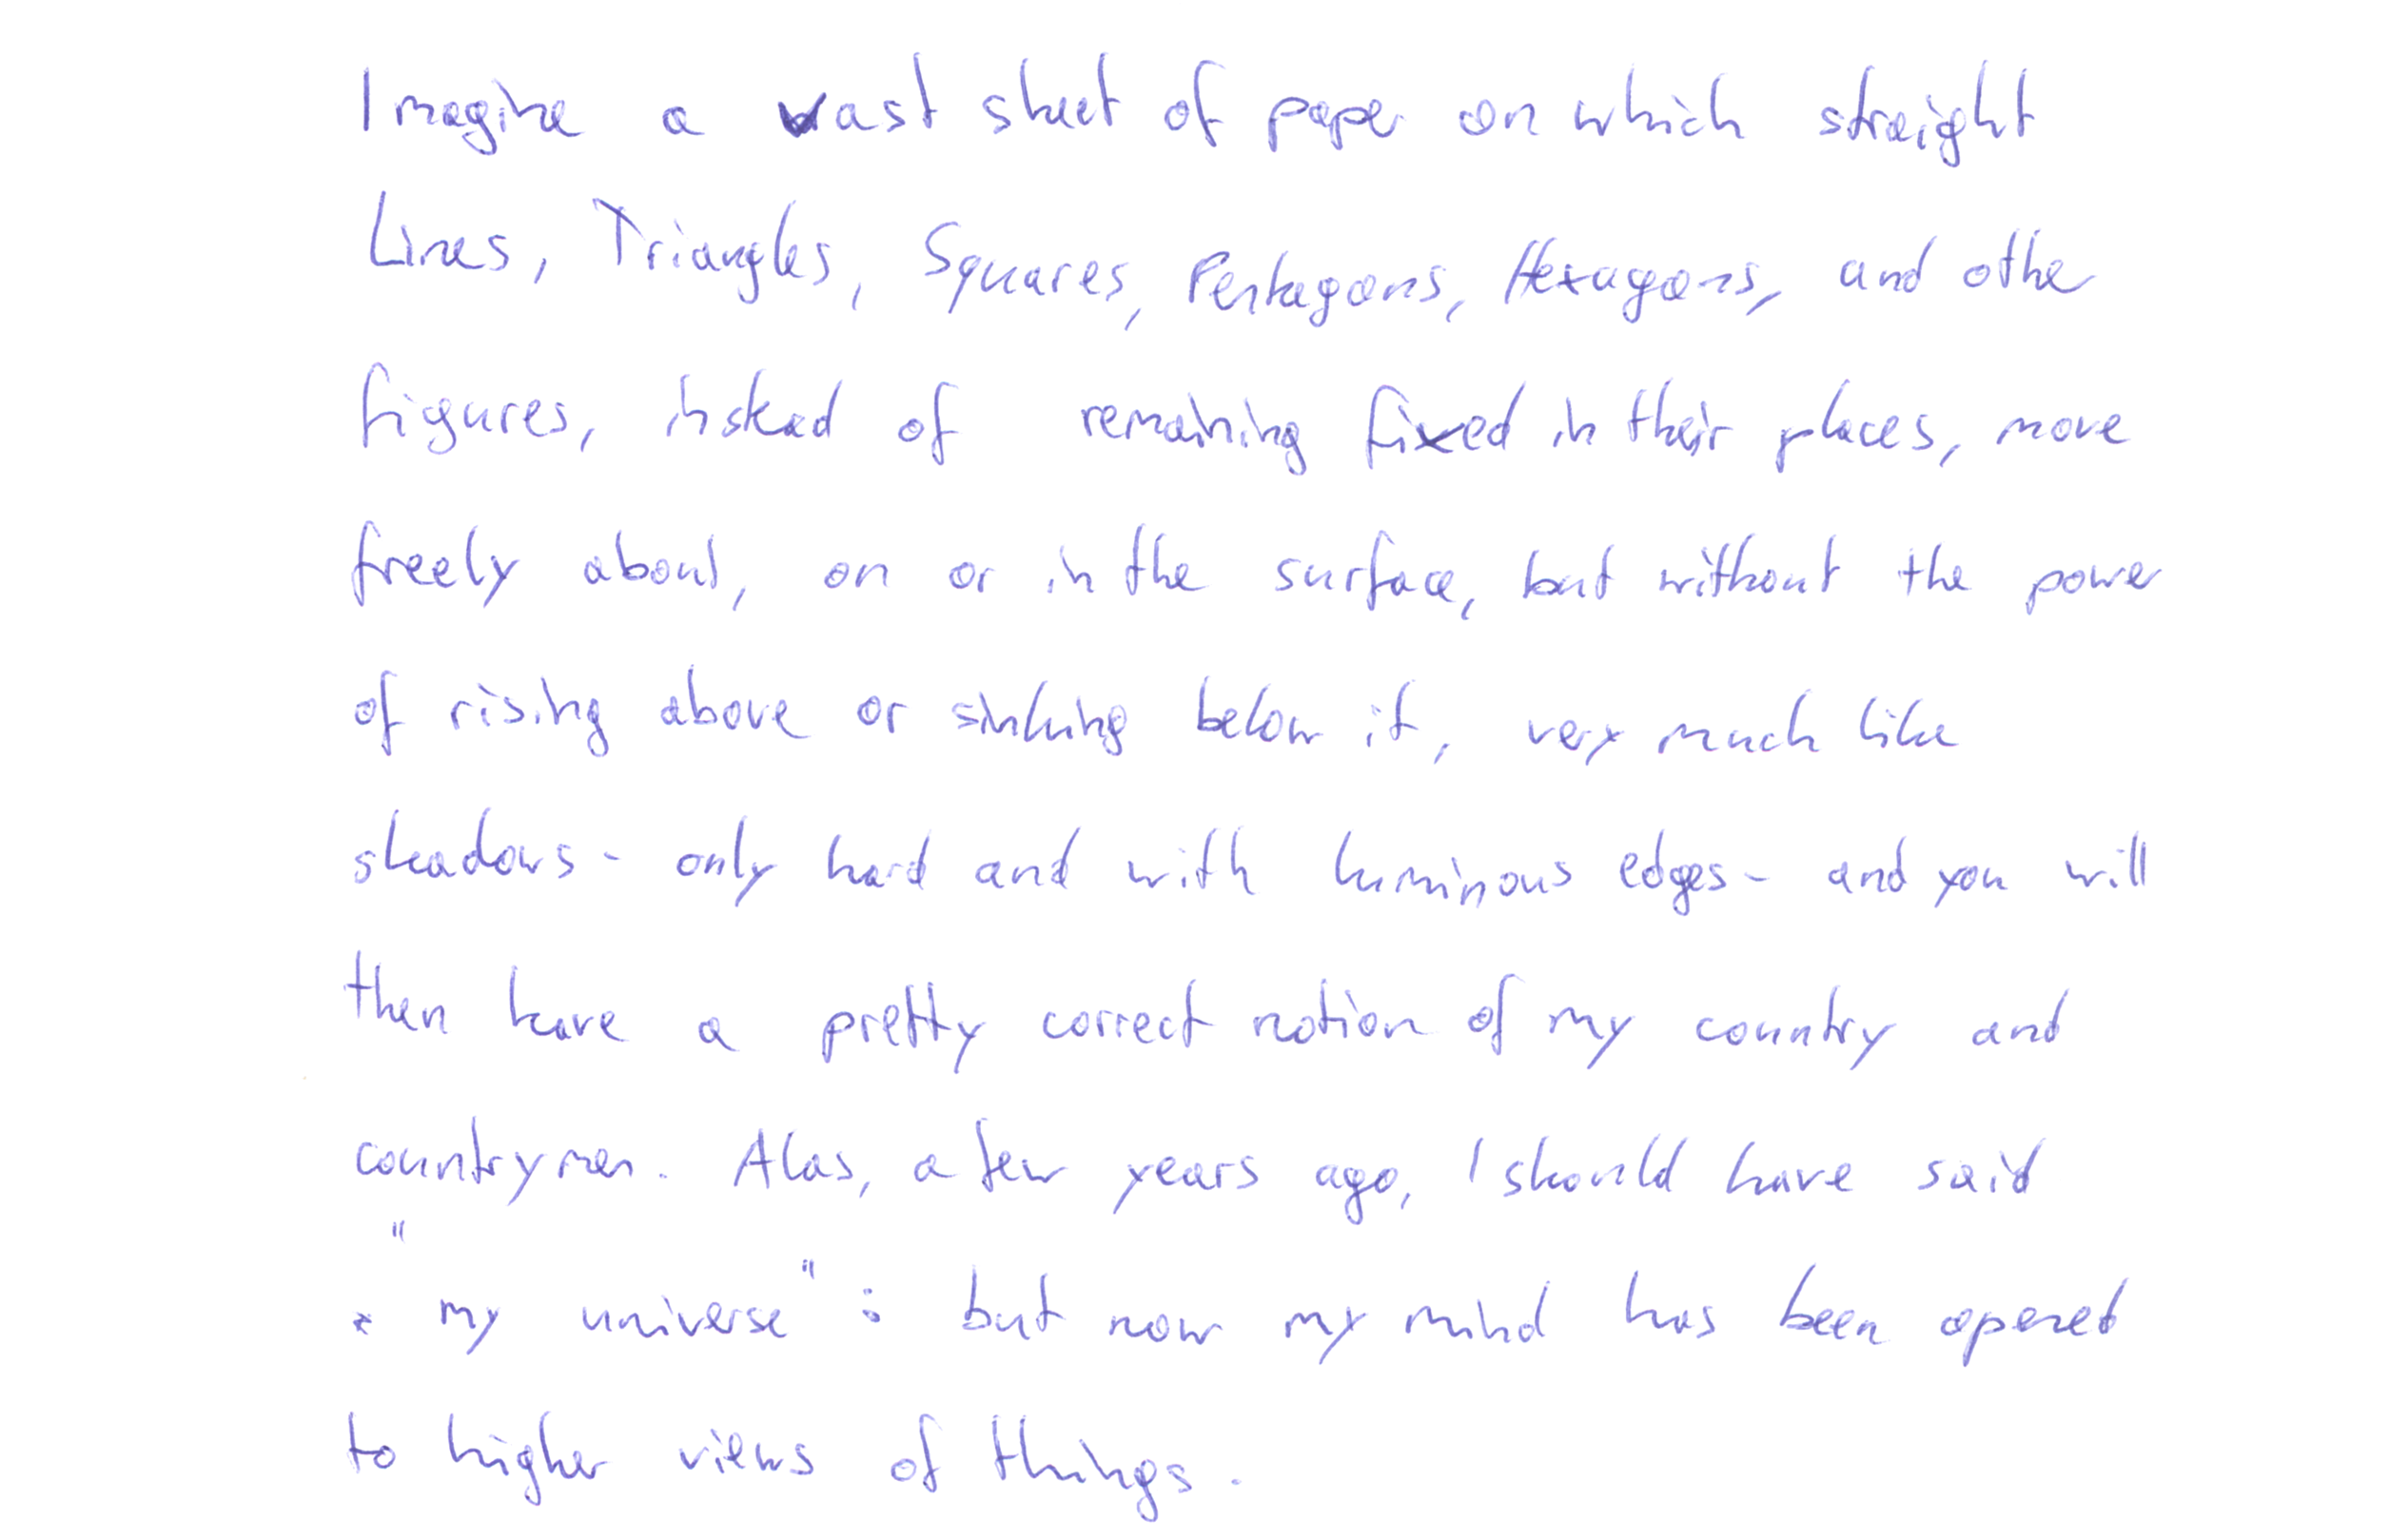 Imagine a vast sheet of paper on which straight
Lines, Triangles, Squares, Pentagons, Hexagons, and other
figures, instead of remaining fixed in their places, move
freely about, on or in the surface, but without the power
of rising above or sinking below it, very much like
shadows - only hard and with luminous edges - and you will
then have a pretty correct notion of my country and
countrymen. Alas, a few years ago, I should have said
"my universe": but now my mind has been opened
to higher views of things.